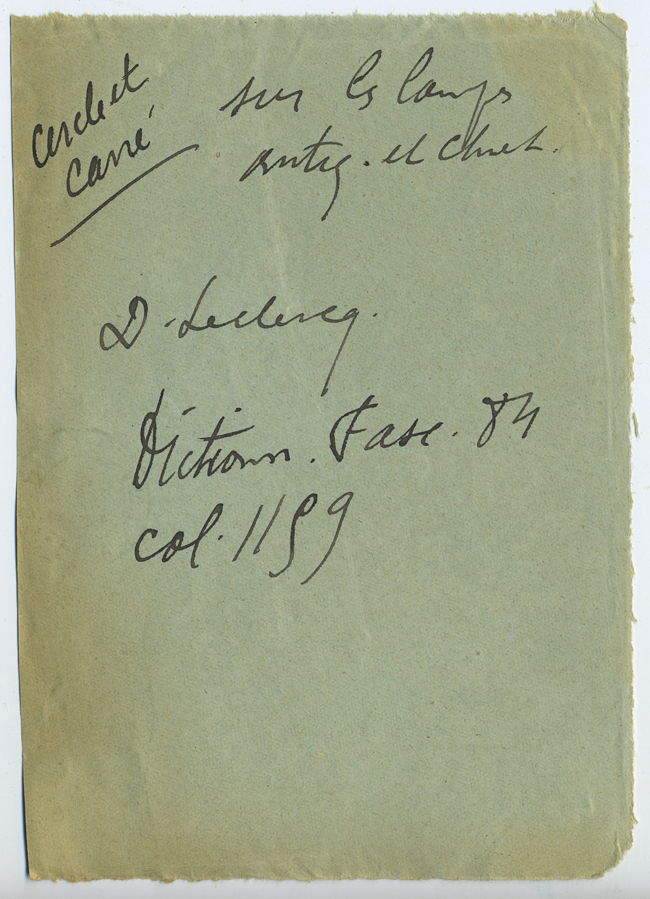 cercle et
carré
sur les lampes
antiq. et chret.
D. Leclercq.
Dictionn. Fasc. 84
col. 1159